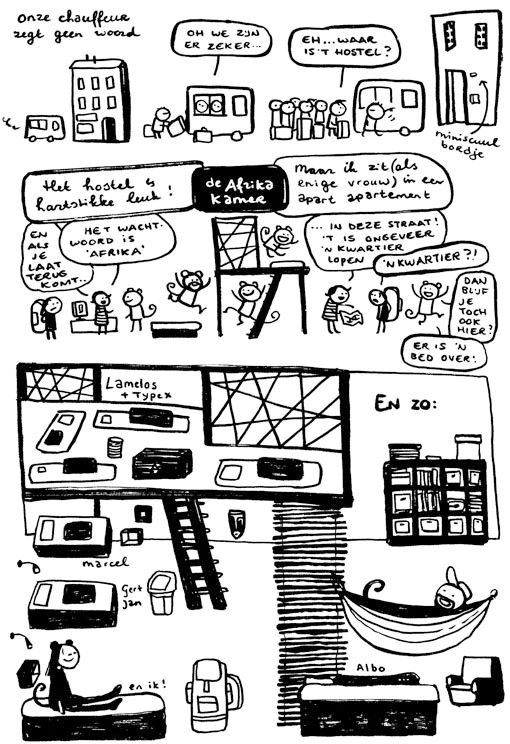 Onze chauffeur
zegt geen woord
OH WE ZIJN
ER ZEKER...
EH...WAAR
IS 'T HOSTEL?
miniscuul
bordje
Het hostel is
hartstikke leuk!
de Afrika
Kamer
maar ik zit (als
enige vrouw) in een
apart apartement
EN
ALS
JE
LAAT
TERUG
KOMT...
HET WACHT-
WOORD IS
'AFRIKA'
... IN DEZE STRAAT!
'T IS ONGEVEER
'N KWARTIER
LOPEN
'N KWARTIER?!
DAN
BLIJF
JE
TOCH
OOK
HIER?
ER IS 'N
BED OVER!
Lamelos
+ Typex
En zo:
marcel
Gert
Jan
en ik!
Albo